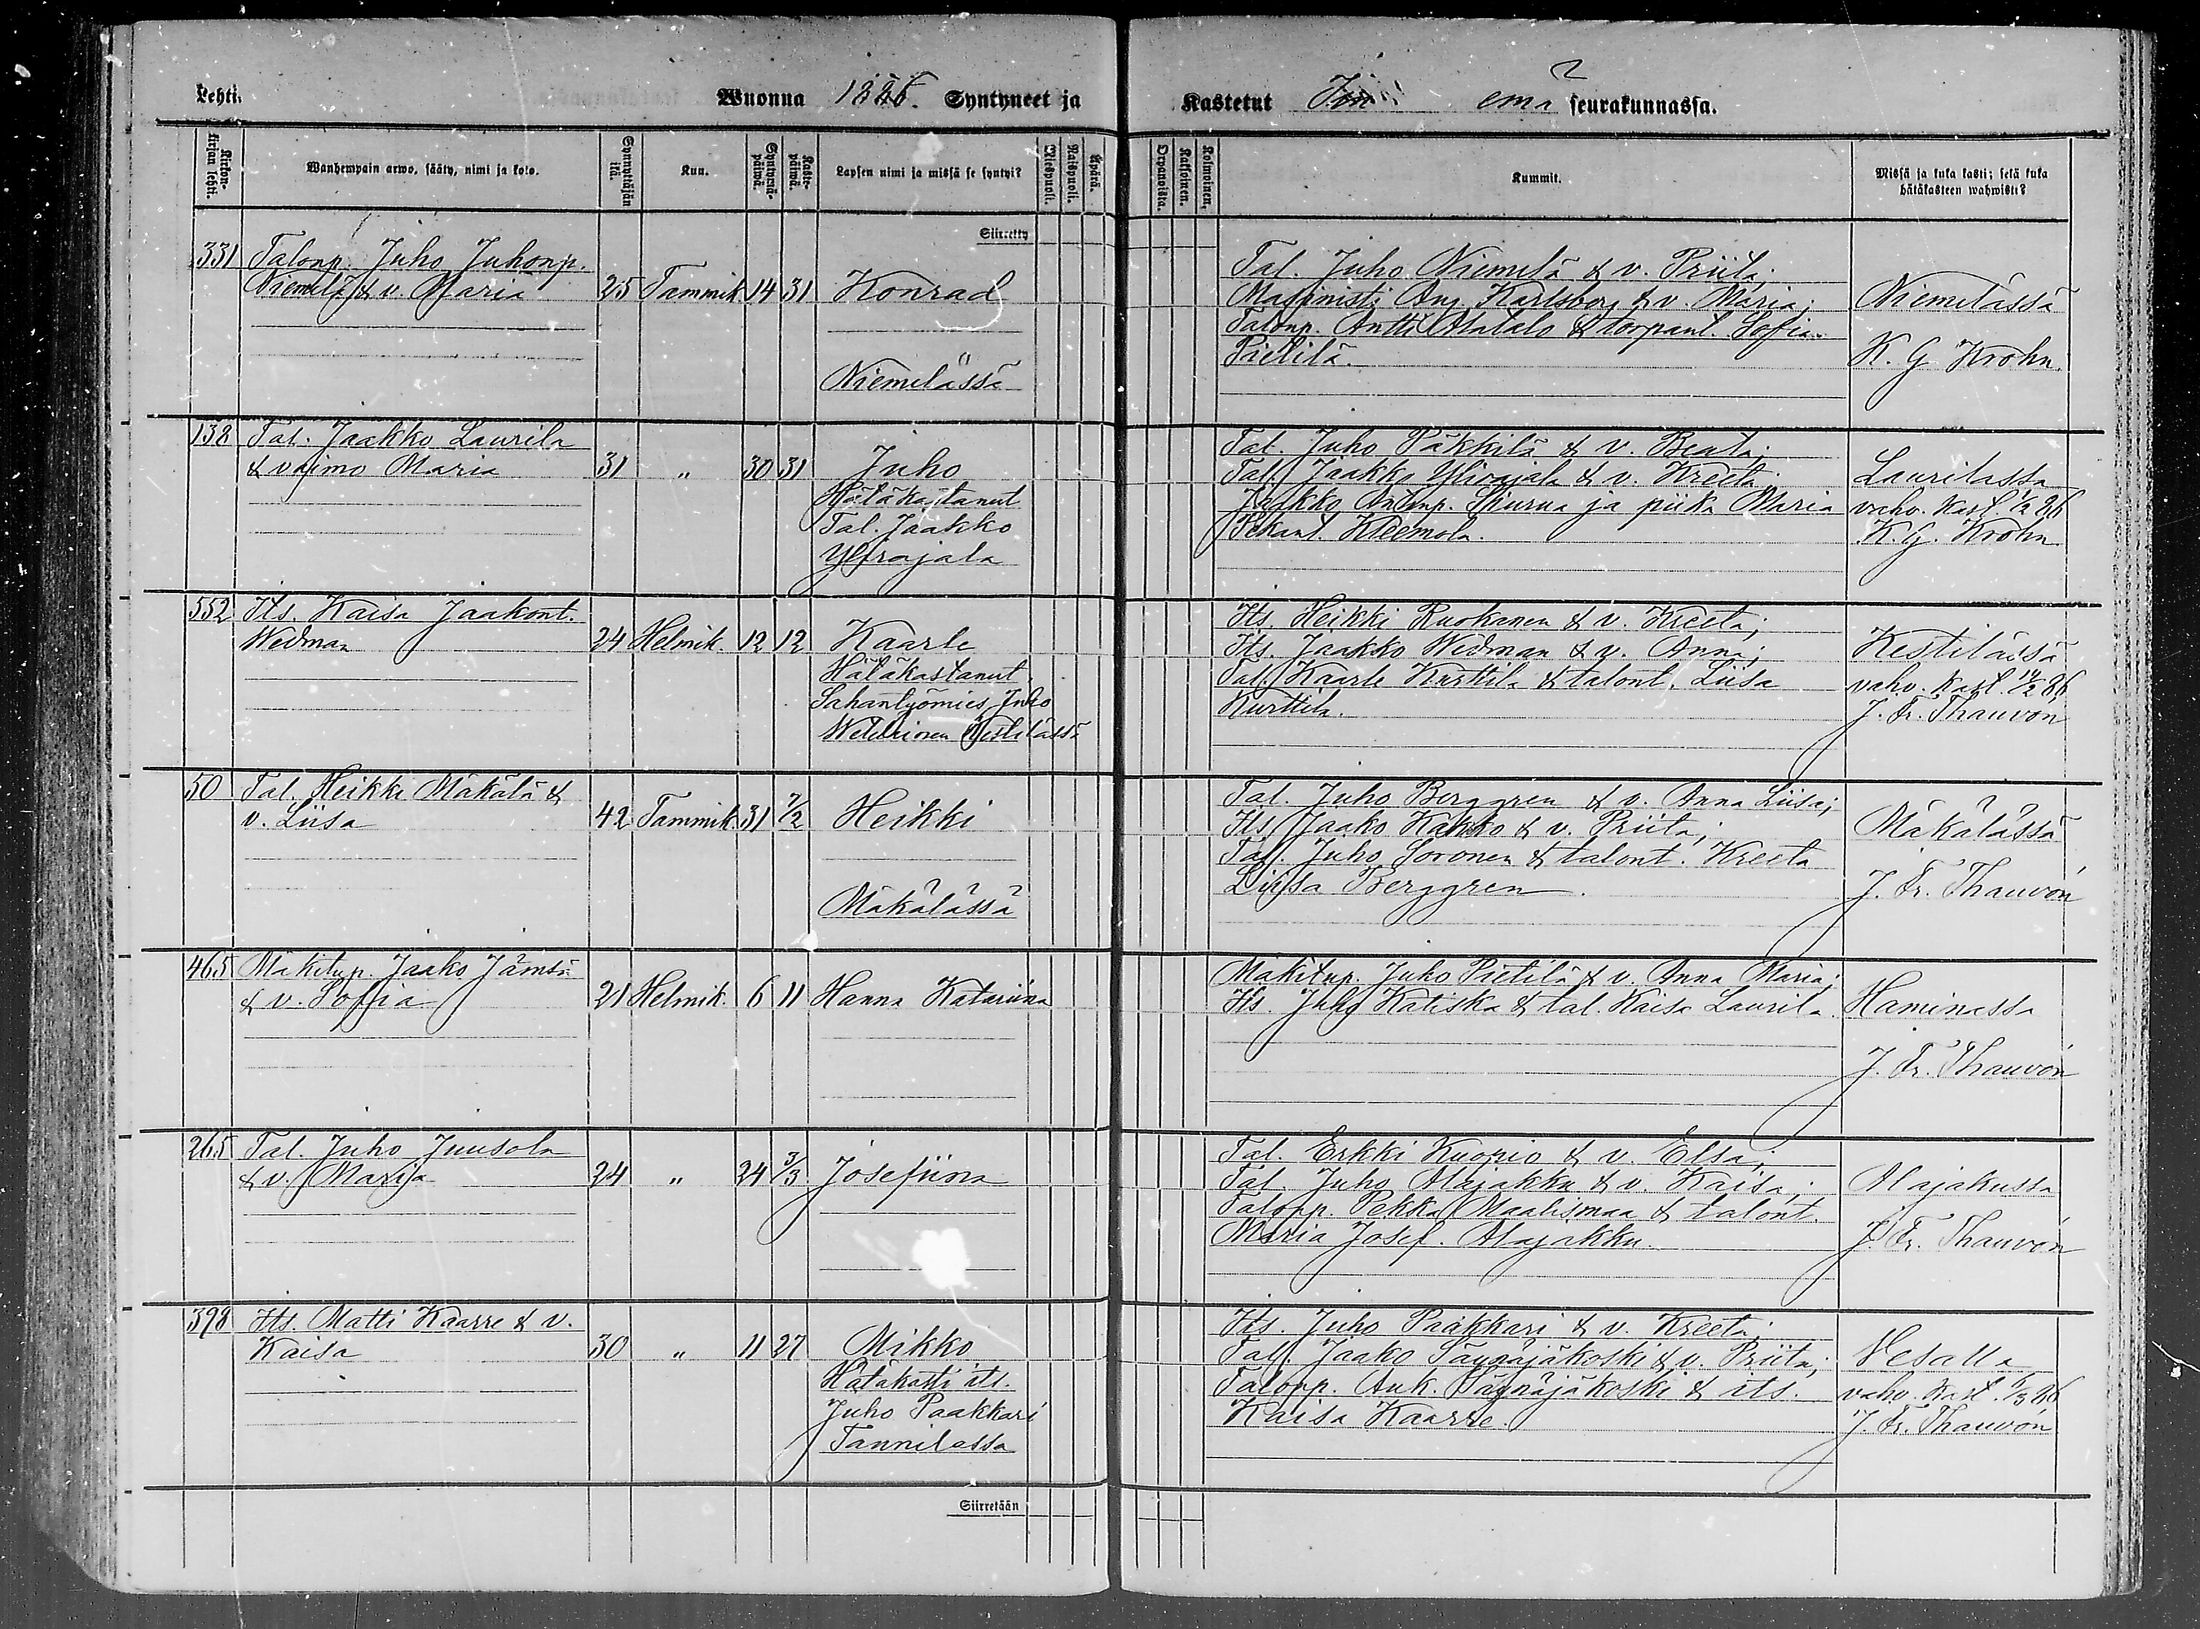 Lehti. Wuonna 1886. Syntyneet ja Kastetut seurakunnassa.
Kirkonkirjan lehti. Wanhempain arwo, sääty, nimi ja koto. Synnyttäjän ikä. Kuu. Syntymäpäiwä. Kastepäiwä. Lapsen nimi ja missä se syntyi? Mieskpuoli. Naiskpuoli. Äpärä. Orpanoista. Kaksoinen. Kolmoinen. Kummit. Missä ja kuka kasti; sekä kuka hätäkasteen wahwisti?
Siirretty
331 Talonp. Juho Juhonp.
Niemelä & v. Maria 25 Tammik. 14 31 Konrad
Niemelässä
Tal. Juho Niemelä & v. Priita;
Masinisti Aug. Karlsberg & v. Maria;
Talonp. Antti Alatalo & torpant. Sofia
Pietilä.
Niemelässä
K. G. Krohn.
138 Tal. Jaakko Laurila
& vaimo Maria 31 " 30 31 Juho
Hätäkastanut
Tal. Jaakko
Ylirajala
Tal. Juho Päkkilä & v. Beata;
Tal. Jaakko Ylirajala & v. Kreeta;
Jaakko Antinp. Skurua ja piika Maria
Pekant. Kleemola.
Laurilassa
vahv. Kast. 1/2 86
K. G. Krohn
552 Its. Kaisa Jaakont.
Wedman 24 Helmik. 12 12 Kaarle
Hätäkastanut
Sahantyömies Juho
Its. Heikki Ruokanen & v. Kreeta;
Its. Jaakko Wedman & v. Anna;
Tal. Kaarle Kurttila & talont. Liisa
Kurttila.
Kestilässä
vahv. Kast. 14/2 86
J. Fr. Thauvón
50 Tal. Heikki Mäkälä &
v. Liisa 42 Tammik. 31 7/2 Heikki
Mäkälässä
Tal. Juho Berggren & v. Anna Liisa;
Its. Jaako Kakko & v. Priita;
Tal. Juho Soronen & talont. Kreeta
Liisa Berggren.
Mäkälässä
J. Fr. Thauvón
465 Mäkitup. Jaako Jämsä
& v. Sofia 21 Helmik. 6 11 Hanna Katariina
Mäkitup. Juho Pietilä & v. Anna Maria;
Its. Juho Katiska & tal. Kaisa Laurila.
Haminassa
J. Fr. Thauvón
265 Tal. Juho Juusola
& v. Marija 24 " 24 3/3 Josefiina
Tal. Erkki Kuopio & v. Elsa;
Tal. Juho Alajakku & v. Kaisa;
Talonp. Pekka Maalismaa & talont.
Maria Josef. Alajakku.
Alajakussa
J. Fr. Thauvón
398 Its. Matti Kaarre & v.
Kaisa 30 " 11 27 Mikko
Hätäkasti its.
Juho Paakkari
Tannilassa
Its. Juho Paakkari & v. Kreeta;
Tal. Jaako Säynäjäkoski & v. Priita;
Talonp. Auk. Säynäjäkoski & its.
Kaisa Kaarre.
Vesalla
vahv. Kast. 5/3 86
J. Fr. Thauvón
Siirretään